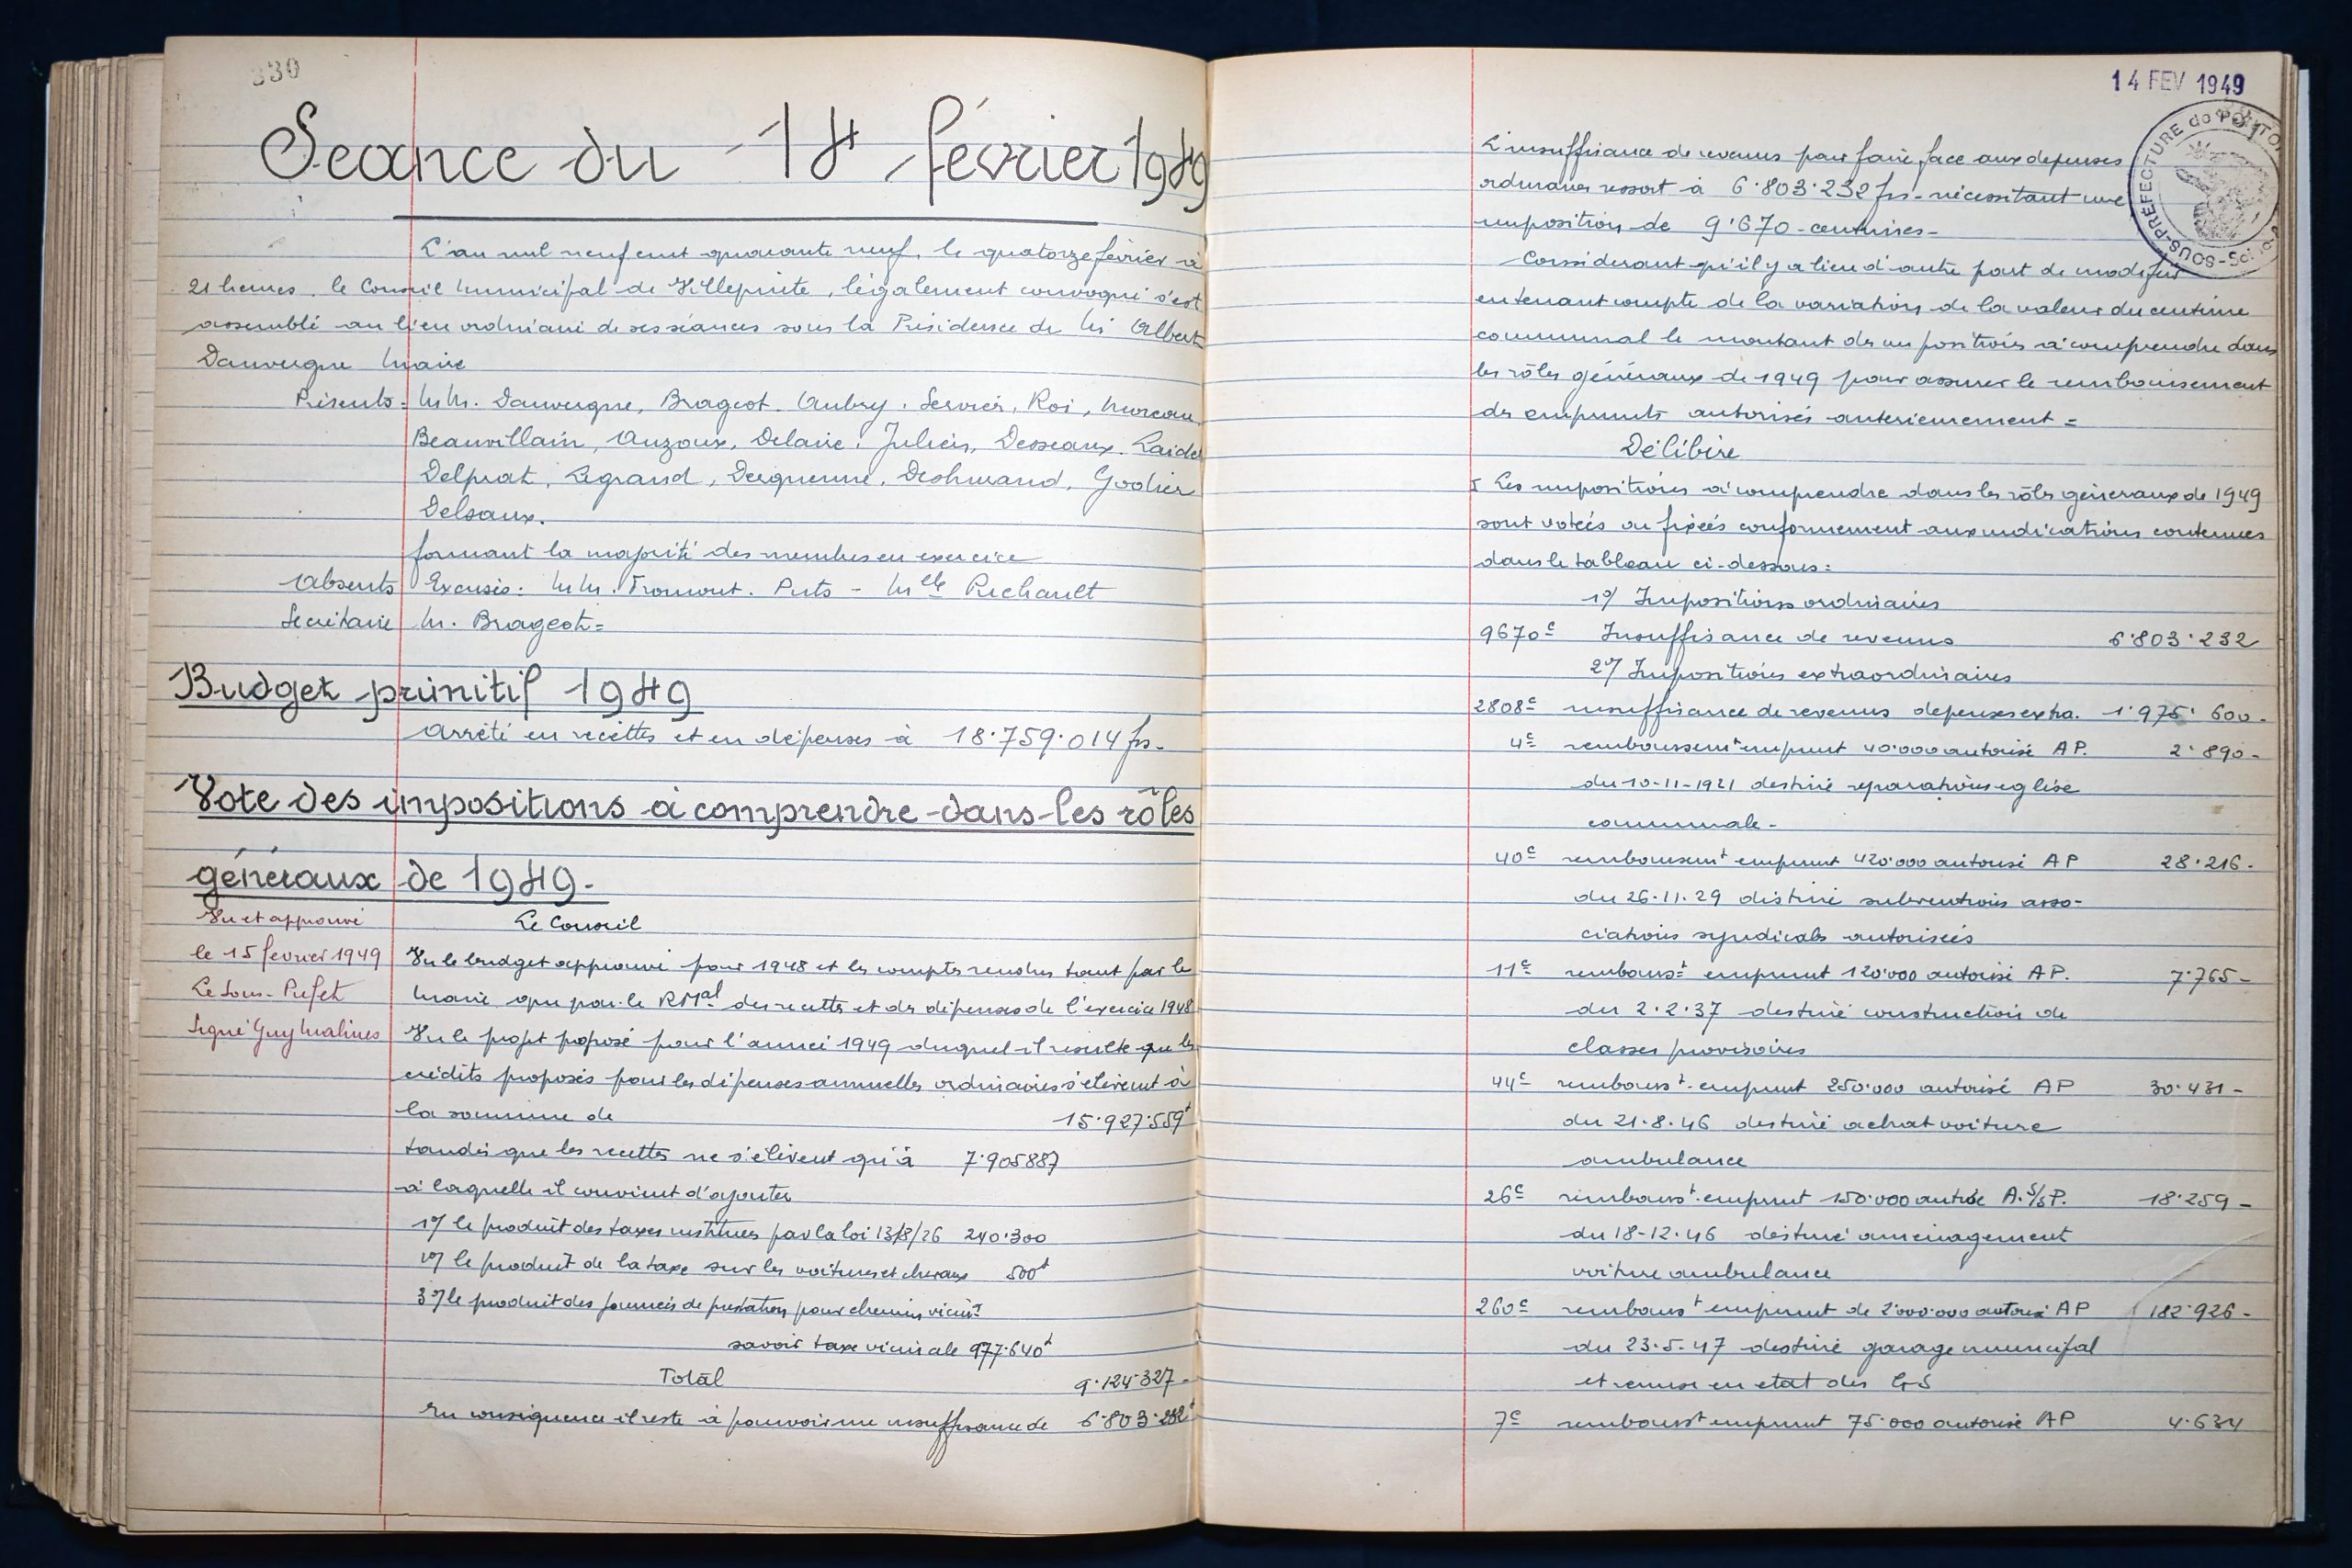 330
Seance du 14 février 1949
L'an mil neuf cent quarante neuf, le quatorze février à
21 heures, le Conseil Municipal de Villepinte, légalement convoqué s'est
assemblé au lieu ordinaire de ses séances sous la Présidence de Mr Albert
Dauvergne Maire
Présents = MM. Dauvergne, Brageot, Aubry, Servier, Roi, Moreau
Beauvillain, Auzoux, Delaire, Julien, Desseaux, Laidet
Delprat, Legrand, Derquenne, Deshmand, Godier
Delsaux.
formant la majorité des membres en exercice
Absents Excusés: MM. Fromont. Puts - Melle Richault
Secrétaire M. Brageot =
Budget primitif 1949
Arrêté en recettes et en dépenses à 18.759.014 frs.
Vote des impositions à comprendre dans les rôles
généraux de 1949.
Vu et approuvé
le 15 fevrier 1949
Le Sous-Préfet
Signé Guy Malines
Le Conseil
Vu le budget approuvé pour 1948 et les comptes rendus tant par le
Maire que par le RMal des recettes et des dépenses de l'exercice 1948
Vu le projet proposé pour l'année 1949 duquel il resulte que les
crédits proposés pour les dépenses annuelles ordinaires s'élèvent à
la somme de 15.927.559f
tandis que les recettes ne s'élèvent qu'à 7.905887
à laquelle il convient d'ajouter
1°/ le produit des taxes instituées par la loi 13/8/26 240.300
2°/ le produit de la taxe sur les voitures et chevaux 500f
3°/ le produit des journées de prestation pour chemins vicint
savoir taxe vicinale 977.640f
Total 9.124.327-
En conséquence il reste à pourvoir une insuffisance de 6.803.232f
14 FEV 1949
SOUS-PRÉFECTURE de PONTO
L'insuffisance de revenus pour faire face aux depenses
ordinaires ressort à 6.803.232 frs - nécessitant une
imposition de 9.670 - centimes -
Considerant qu'il y a lieu d'autre part de modifier
en tenant compte de la variation de la valeur du centime
communal le montant des impositions à comprendre dans
les rôles généraux de 1949 pour assurer le remboursement
des emprunts autorisés anterieurement =
Délibère
Les impositions à comprendre dans les rôles géneraux de 1949
sont votées ou fixées conformement aux indications contenues
dans le tableau ci-dessous:
1°/ Impositions ordinaires
9670c Insuffisance de revenus 6.803.232
2°/ Impositions extraordinaires
2808c insuffisance de revenus depenses extra. 1.975.600-
4c remboussemt emprunt 40.000 autorisé AP. 2.890-
du 10-11-1921 destiné réparations eglise
communale -
40c remboursemt emprunt 420.000 autorisé AP 28.216-
du 26.11.29 destiné subventions asso-
ciations syndicales autorisées
11c rembourst emprunt 120.000 autorisé AP. 7.765-
du 2.2.37 destiné construction de
classes provisoires
44c rembourst emprunt 250.000 autorisé AP 30.431-
du 21.8.46 destiné achat voiture
ambulance
26c rembourst emprunt 150.000 autrisé A.S/sP. 18.259-
du 18-12.46 destiné aménagement
voiture ambulance
260c rembourst emprunt de 2.000.000 autorisé AP 182.926-
du 23.5.47 destiné garage municipal
et remise en etat des GS
7c rembourst emprunt 75.000 autorisé AP 4.634